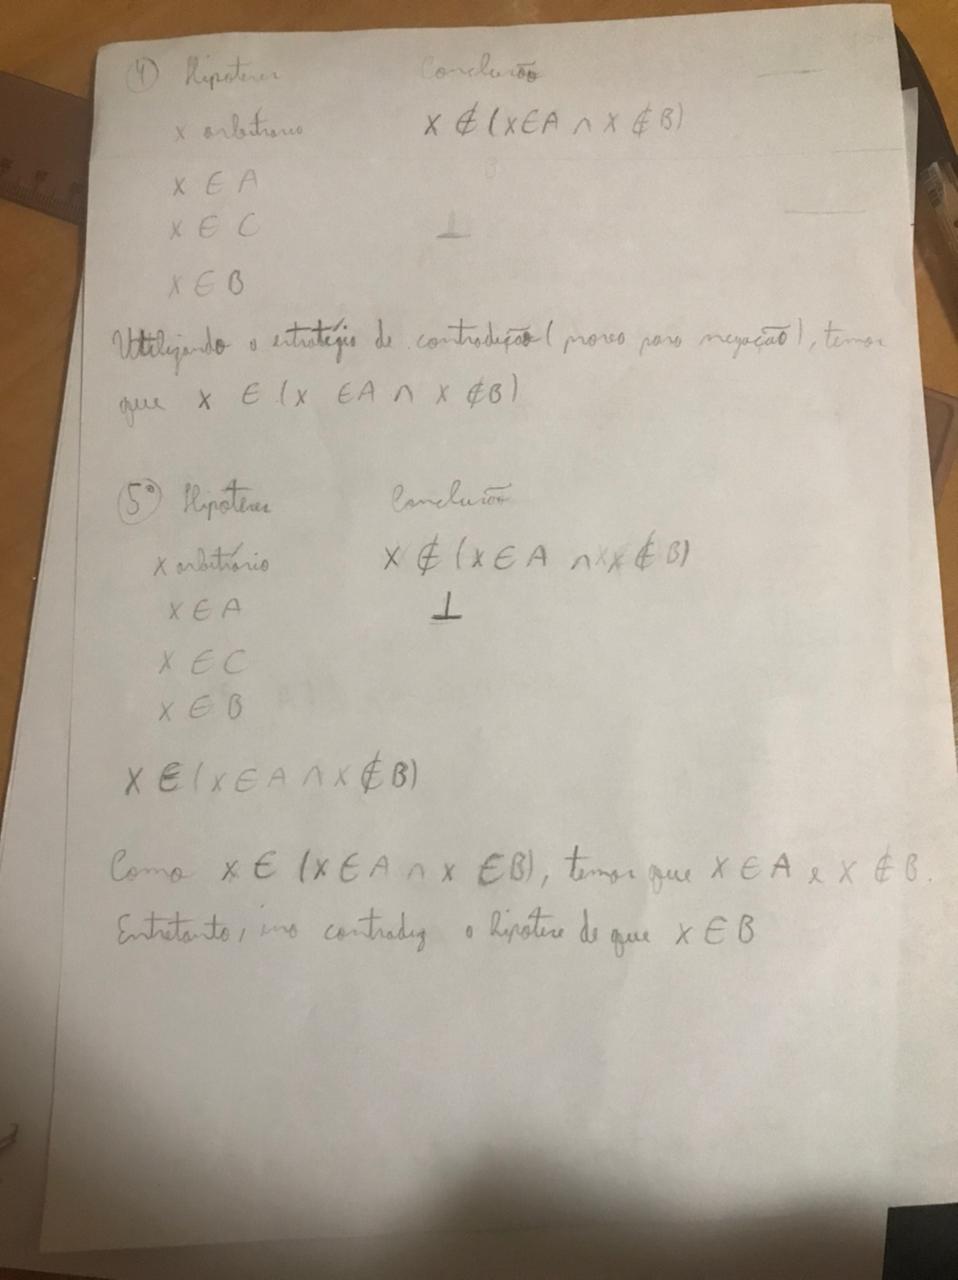 4 Hipóteses Conclusão
x arbitrário x ∉ (x ∈ A ∩ x ∉ B)
x ∈ A
x ∈ C ⊥
x ∈ B
Utilizando a estratégia de contradição (prova para negação), temos
que x ∈ (x ∈ A ∩ x ∉ B)
5º Hipóteses Conclusão
x arbitrário x ∉ (x ∈ A ∩ x ∉ B)
x ∈ A ⊥
x ∈ C
x ∈ B
x ∈ (x ∈ A ∩ x ∉ B)
Como x ∈ (x ∈ A ∩ x ∈ B), temos que x ∈ A e x ∉ B.
Entretanto, isso contradiz a hipótese de que x ∈ B